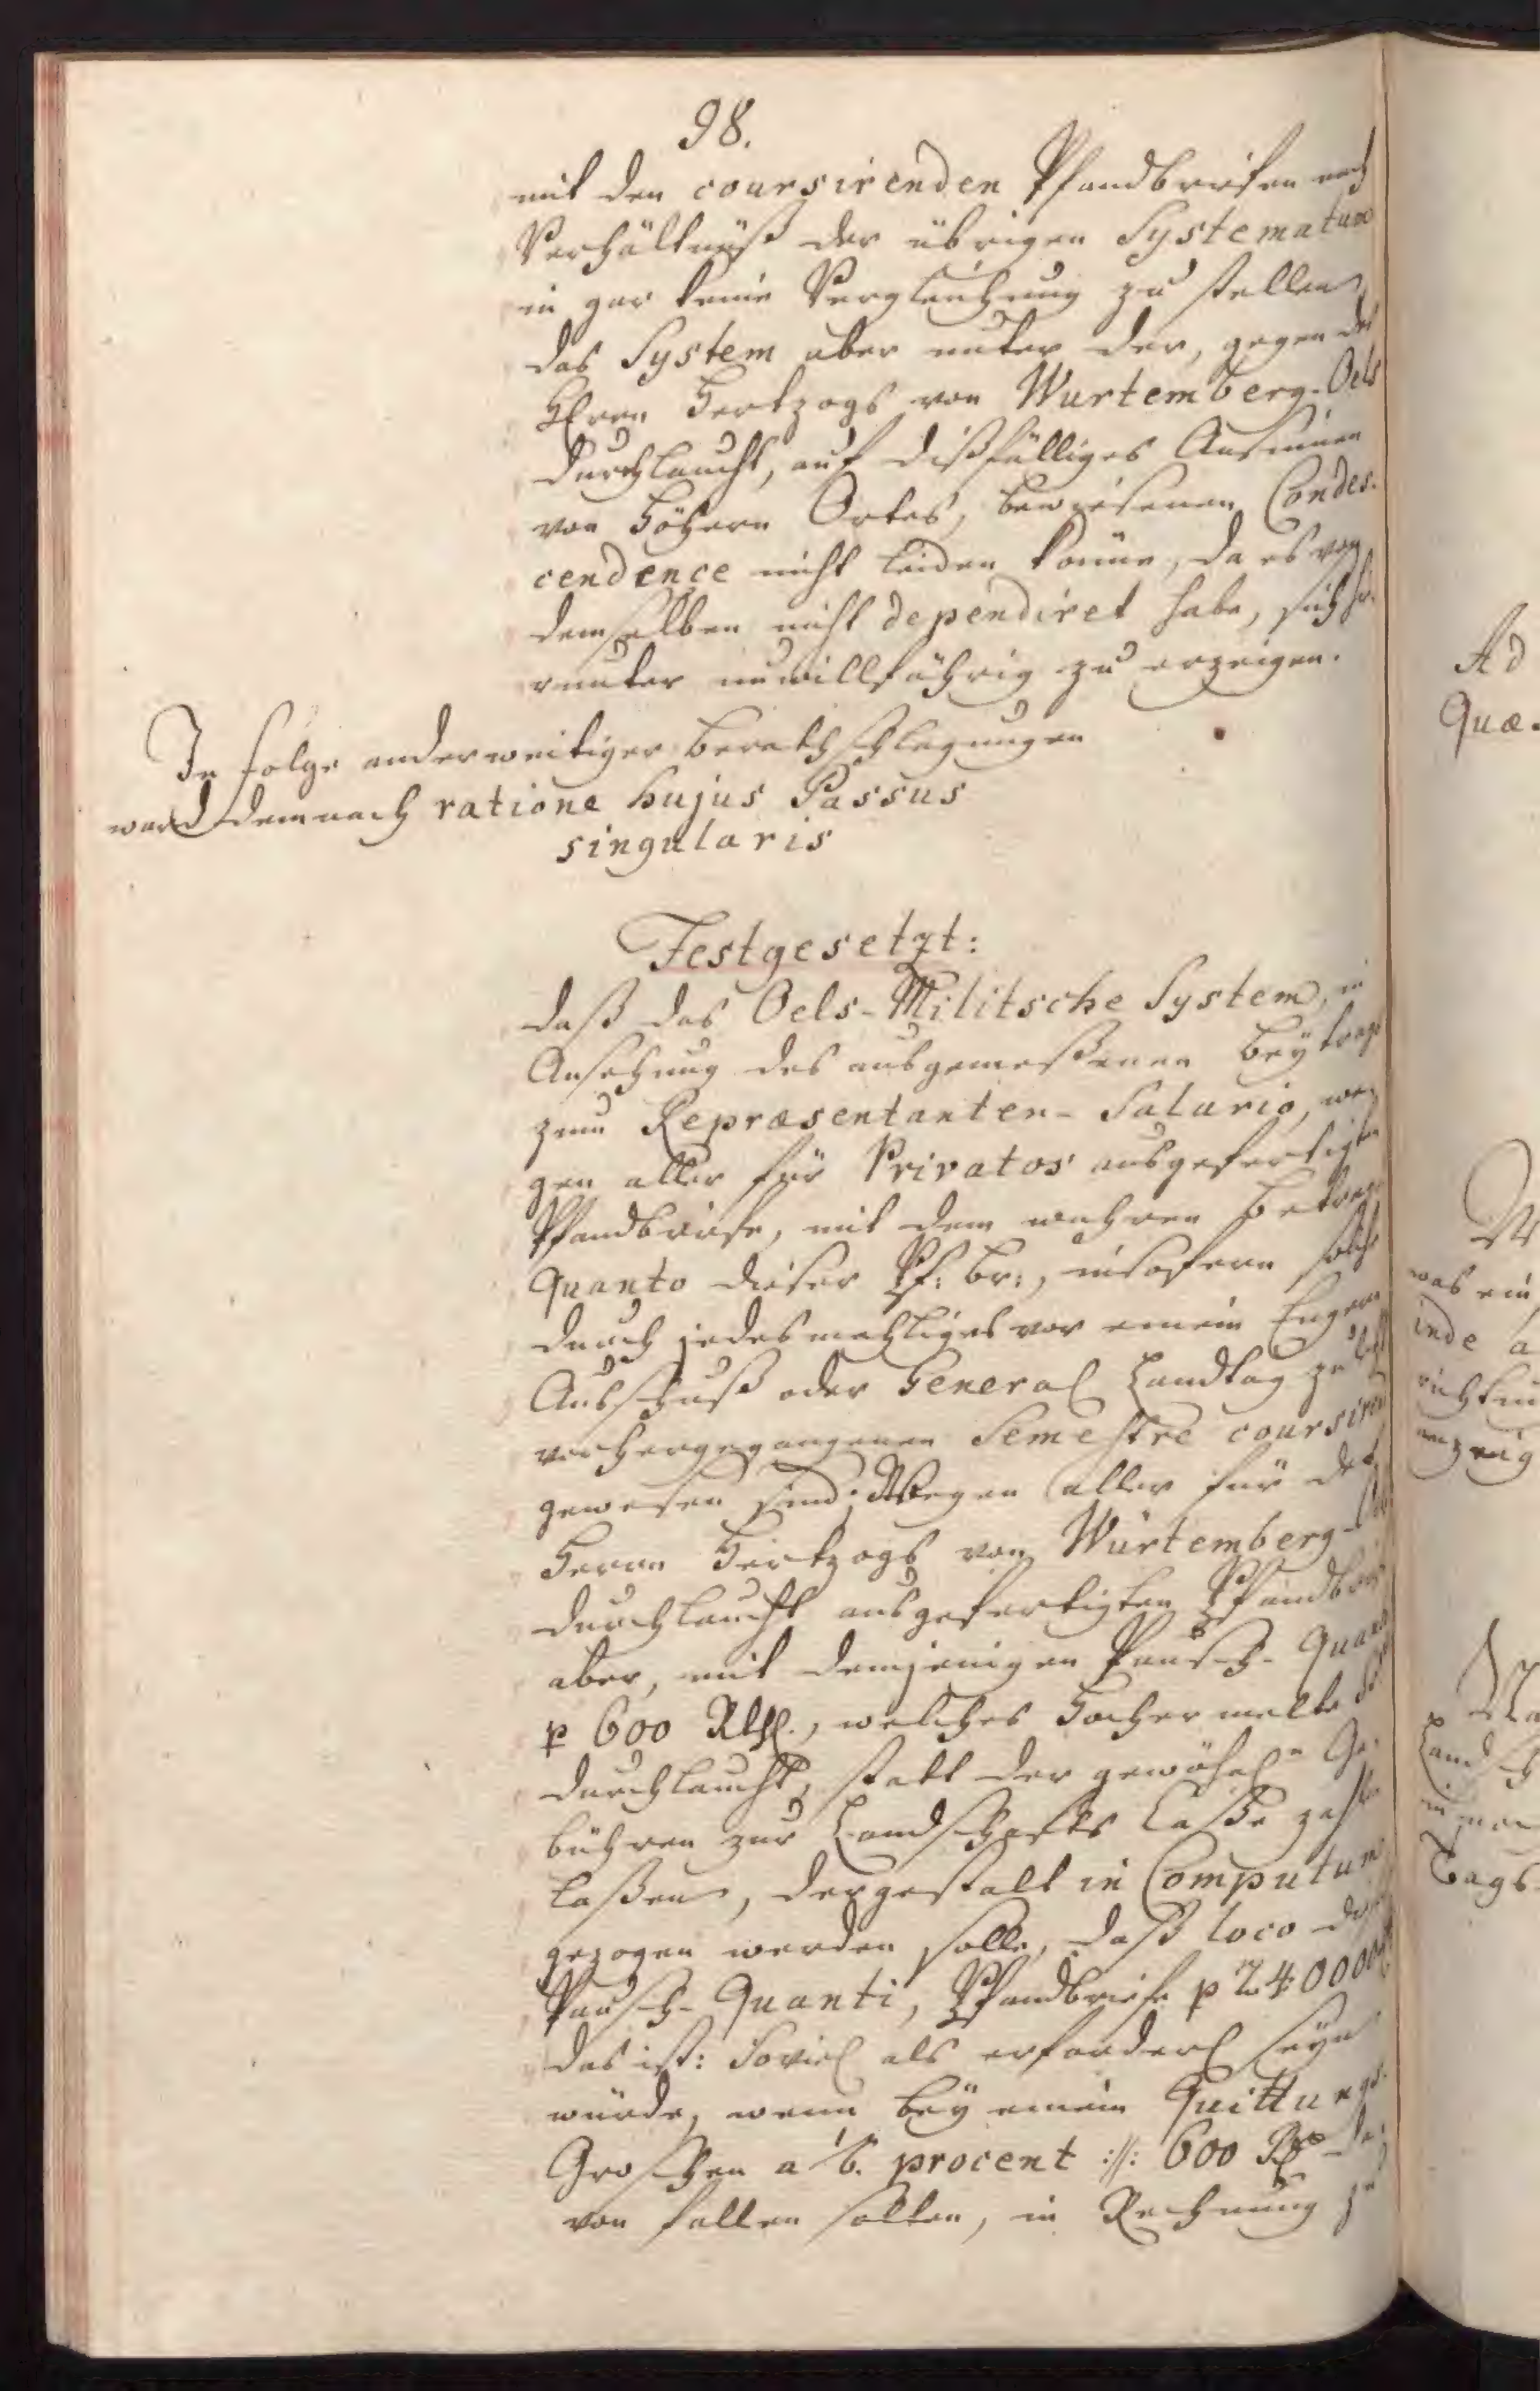 98.
mit den coursirenden Pfandbriefen nach
Verhältnüß der übrigen Systematum
in gar keine Vergleichung zu stellen,
das System aber unter der, gegen des
Herrn Hertzogs von Wurtemberg-Oels
Durchlaucht, auf dißfälliges Ansinnen
von höhern Ortes, bewiesenen Condes-
cendence nicht leiden könne, da es von
demselben nicht dependiret habe, sich hie-
runter unwillfährig zu erzeigen.
In Folge anderweitiger Berathschlagungen
ward demnach ratione hujus Passus
singularis
Festgesetzt:
daß das Oels-Militsche System, in
Ansehung des ausgemeßenen Beytrags
zum Repræsentanten-Salario, we-
gen aller für Privatos ausgefertigten
Pfandbriefe, mit dem wahren Betrags
Quanto dieser Pf: br:, insofern solche
durch jedesmahliges vor einem Engern
Ausschuß oder General Landtag
vorhergegangenen Semestre coursirend
gewesen sind; Wegen aller für des
Herrn Hertzogs von Würtemberg-
Durchlaucht ausgefertigten Pfandbriefe
aber, mit demjenigen Pausch-Quanto
p 600 Rthl., welches Hocherwelte
Durchlaucht, statt der gewöhnl. Ge-
bühren zur Landschafts Casse zahlen
laßen, dergestalt in Computum
gezogen werden solle, daß loco
Pausch-Quanti, Pfandbriefe p 240000
das ist: Soviel als erforderl. seyn
würde, wenn bey einem Quittungs-
Groschen a procent :/: 600 Rthl. da-
von fallen sollen, in Rechnung zu
Ad
Quæ-
was ein
inde a
Land
Tags